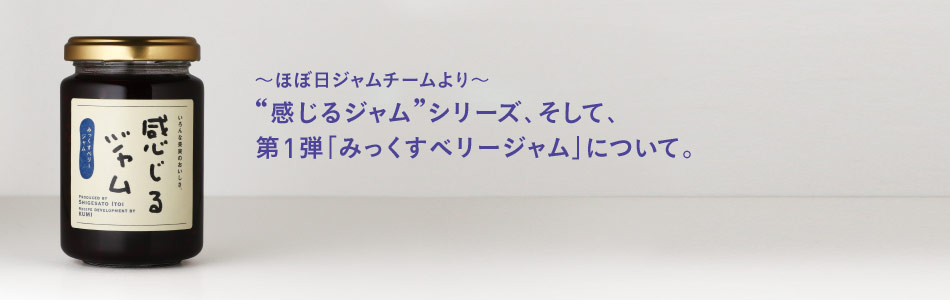 ～ほぼ日ジャムチームより～
“感じるジャム”シリーズ、そして、
第1弾「みっくすベリージャム」について。
いろんな果実のおいしさ。
感じる
ジャム
みっくすベリー
ジャム
PRODUCED BY
SHIGESATO ITOI
RECIPE DEVELOPMENT BY
KUMI